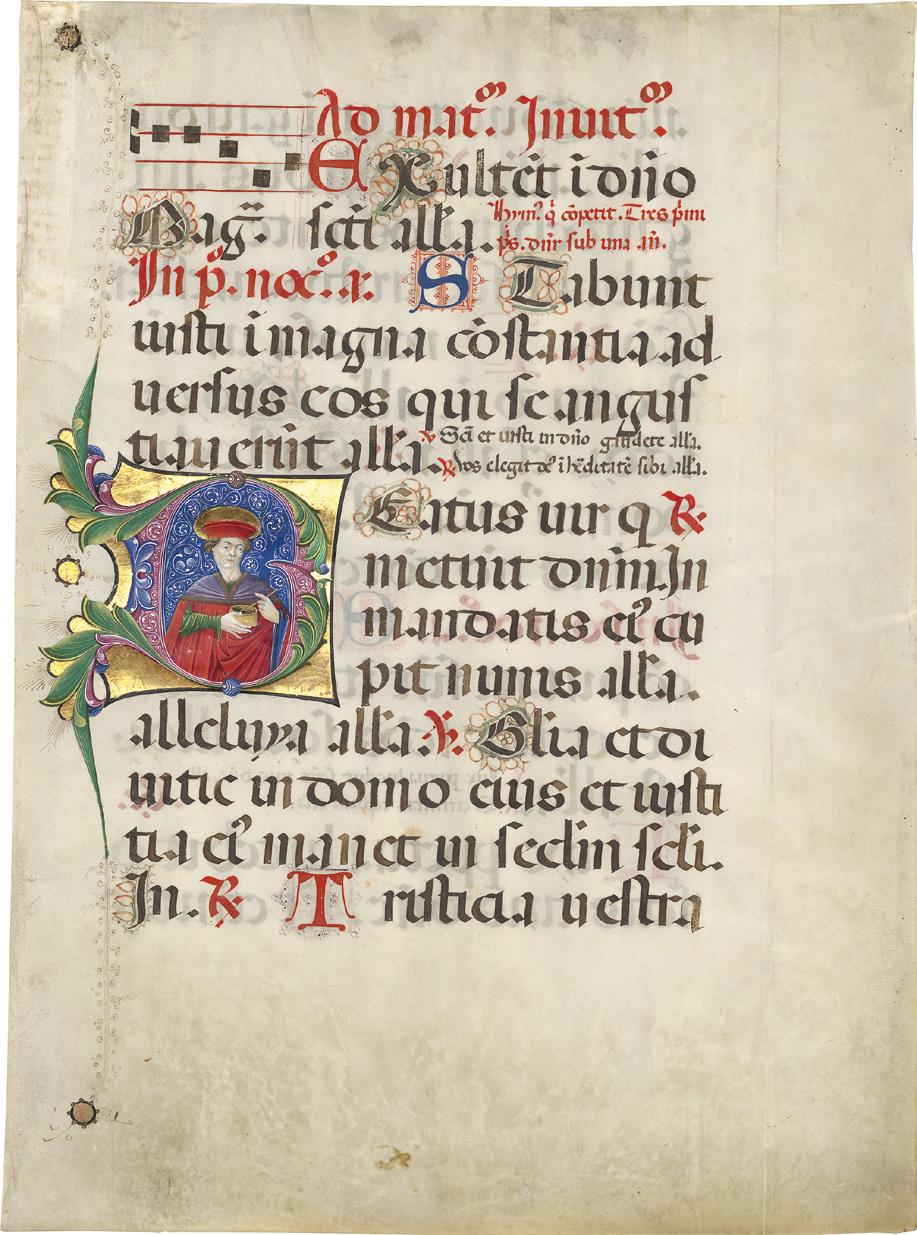 Ad mat͞o. Inuit͞o.
EXultẽt ĩ dño
Mag̃. scti all̃a. Hym͞. q̃ cõpetit. Tres p̃mi
p̃s. dñr sub una añ.
In p̊. noc͞o. a. S Tabunt
iusti ĩ magna cõstantia ad
uersus eos qui se angus
tiauerũt all̃a. ℣ Scĩ et iusti in dño gaudete all̃a.
℟ Uos elegit dẽ ĩ hẽditatẽ sibi all̃a.
BEatus uir q ℟
metuit dñm. In
mandatis eiꝰ cu
pit nimis all̃a.
alleluya all̃a. ℣. Gl̃ia et di
uitie in domo eius et iusti
tia eiꝰ manet in seclm̃ scl̃i.
In. ℟ Tristicia uestra